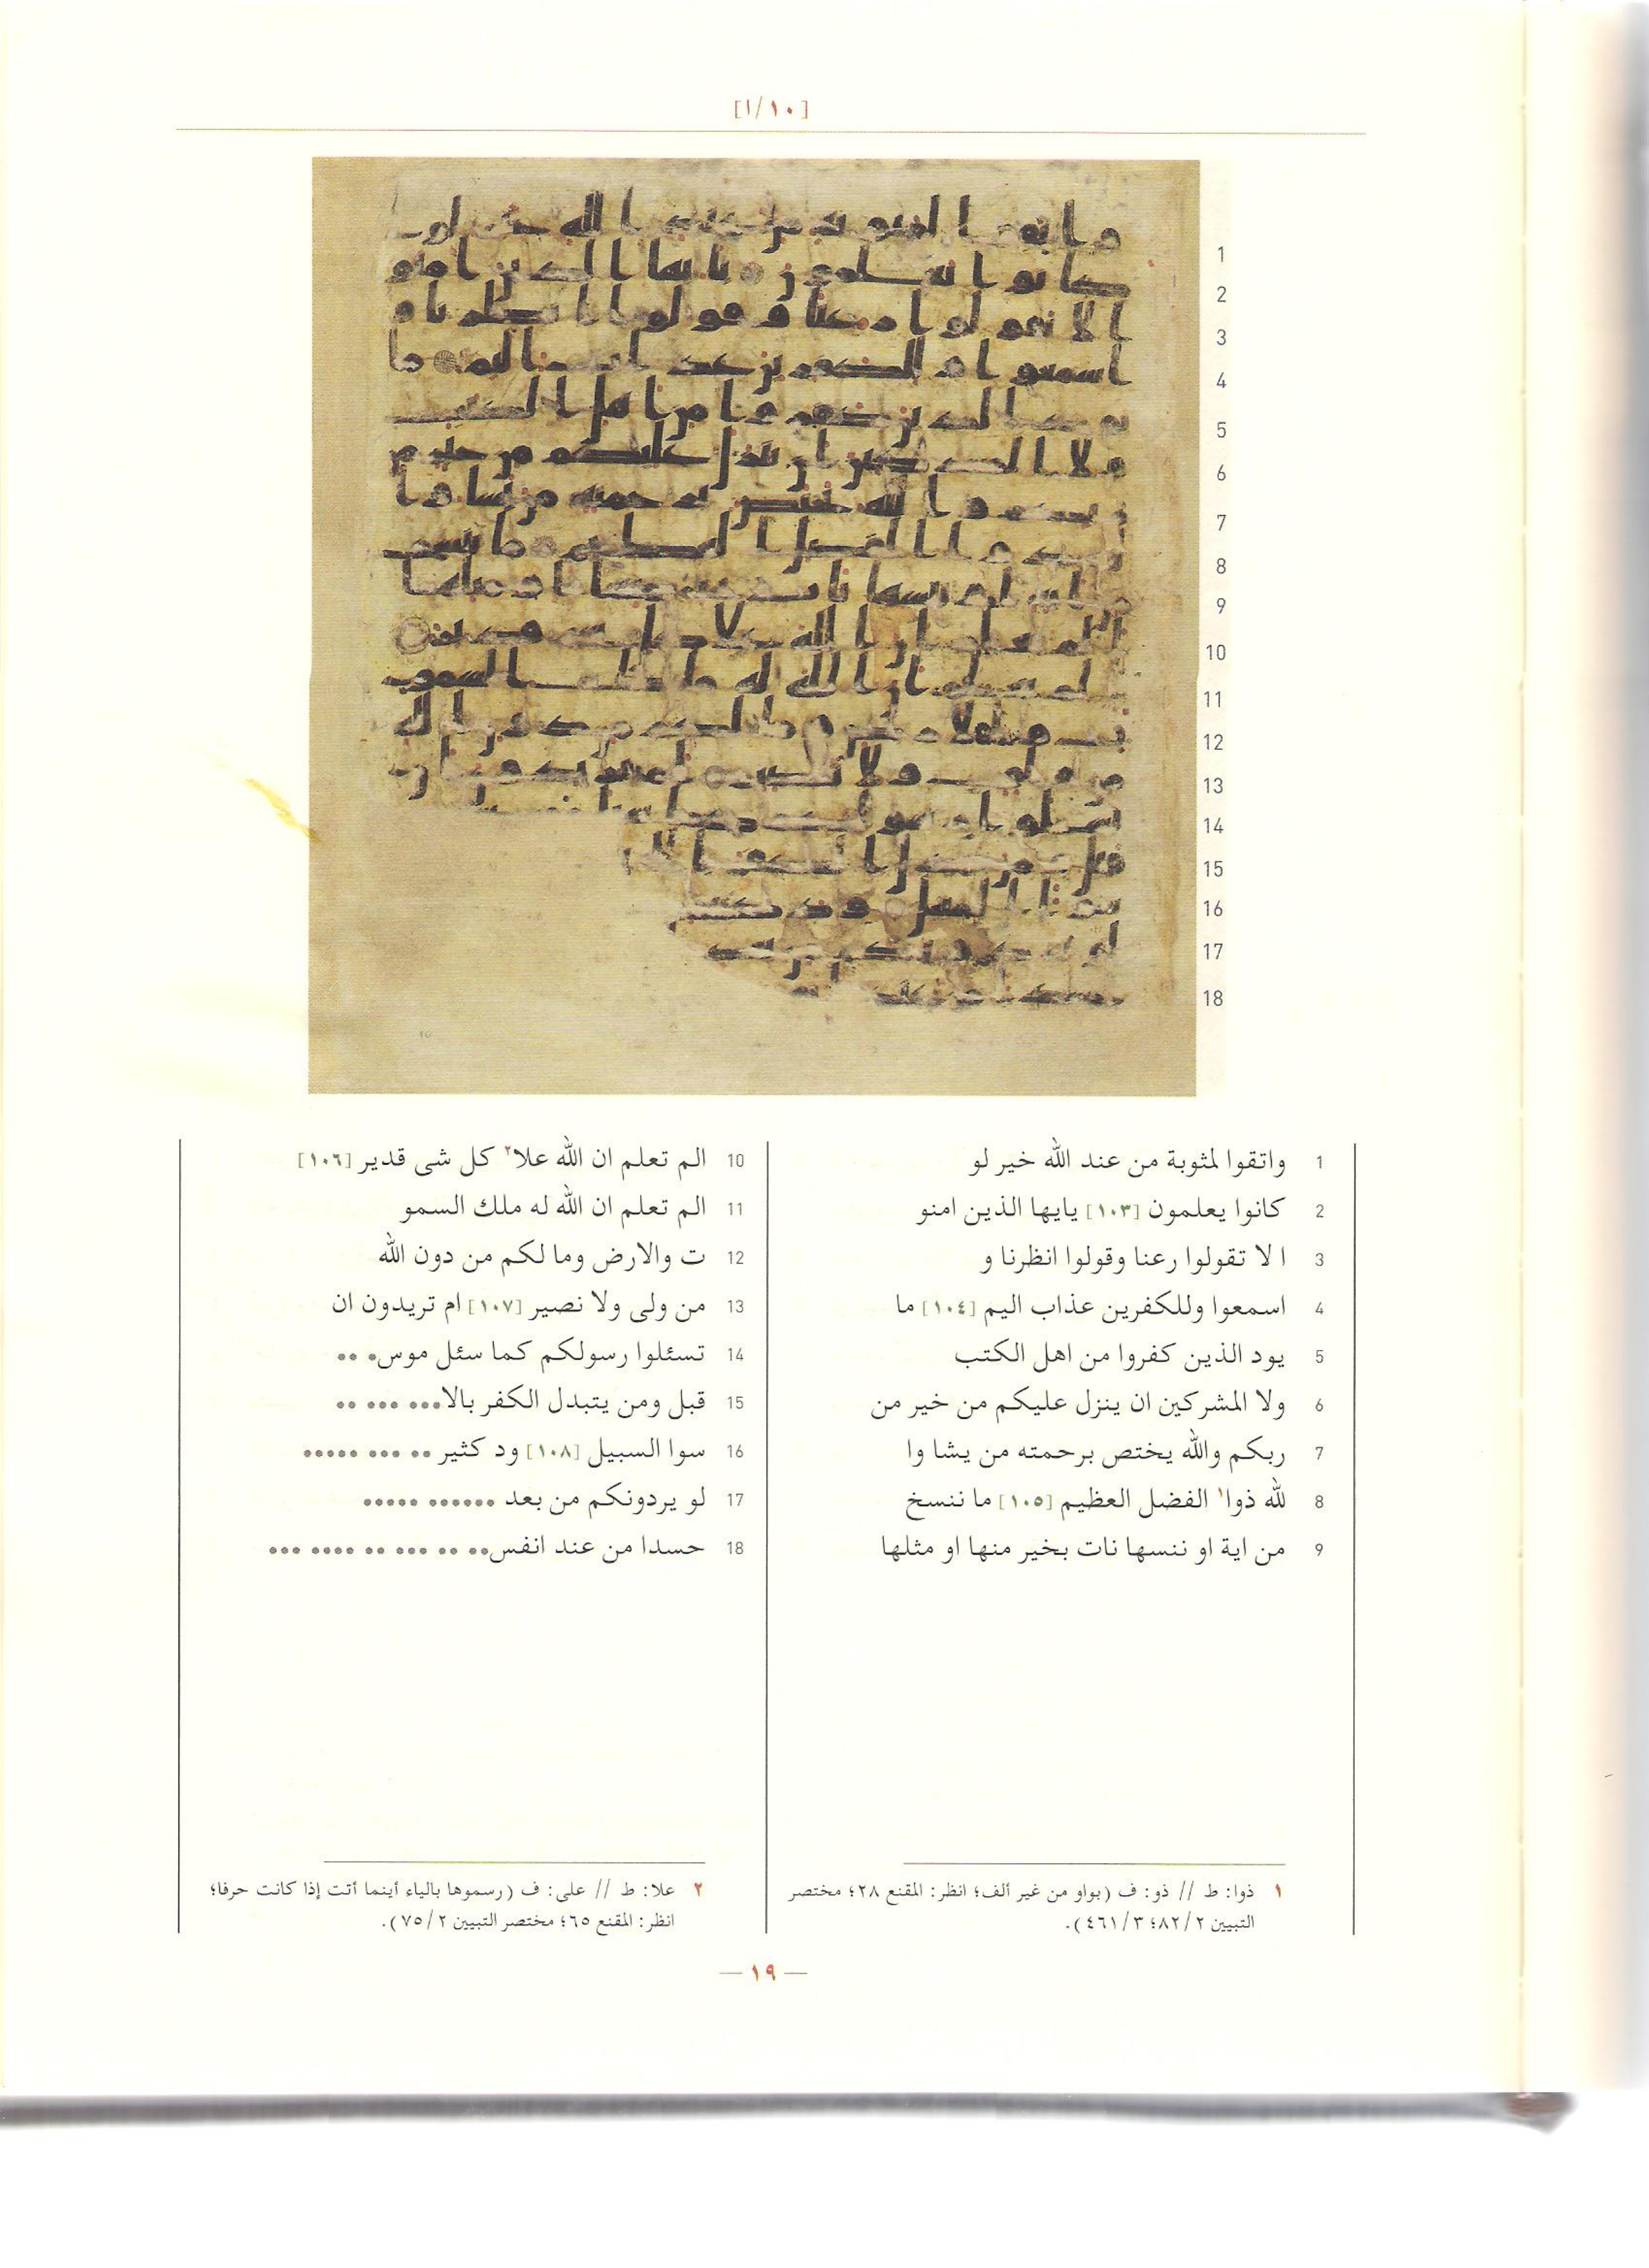 [١٠/١]
1 واتقوا لمثوبة من عند الله خير لو
2 كانوا يعلمون [١٠٣] يايها الذين امنو
3 ا لا تقولوا رعنا وقولوا انظرنا و
4 اسمعوا وللكفرين عذاب اليم [١٠٤] ما
5 يود الذين كفروا من اهل الكتب
6 ولا المشركين ان ينزل عليكم من خير من
7 ربكم والله يختص برحمته من يشا وا
8 لله ذوا١ الفضل العظيم [١٠٥] ما ننسخ
9 من اية او ننسها نات بخير منها او مثلها
10 الم تعلم ان الله علا٢ كل شى قدير [١٠٦]
11 الم تعلم ان الله له ملك السمو
12 ت والارض وما لكم من دون الله
13 من ولى ولا نصير [١٠٧] ام تريدون ان
14 تسئلوا رسولكم كما سئل موس• ••
15 قبل ومن يتبدل الكفر بالا••• ••• ••
16 سوا السبيل [١٠٨] ود كثير •• ••• •••••
17 لو يردونكم من بعد •••••• •••••
18 حسدا من عند انفس•• •• ••• •• •••• •••
١ ذوا: ط // ذو: ف (بواو من غير ألف؛ انظر: المقنع ٢٨؛ مختصر
التبيين ٨٢/٢؛ ٤٦١/٣).
٢ علا: ط // على: ف (رسموها بالياء أينما أتت إذا كانت حرفا؛
انظر: المقنع ٦٥؛ مختصر التبيين ٧٥/٢).
— ١٩ —